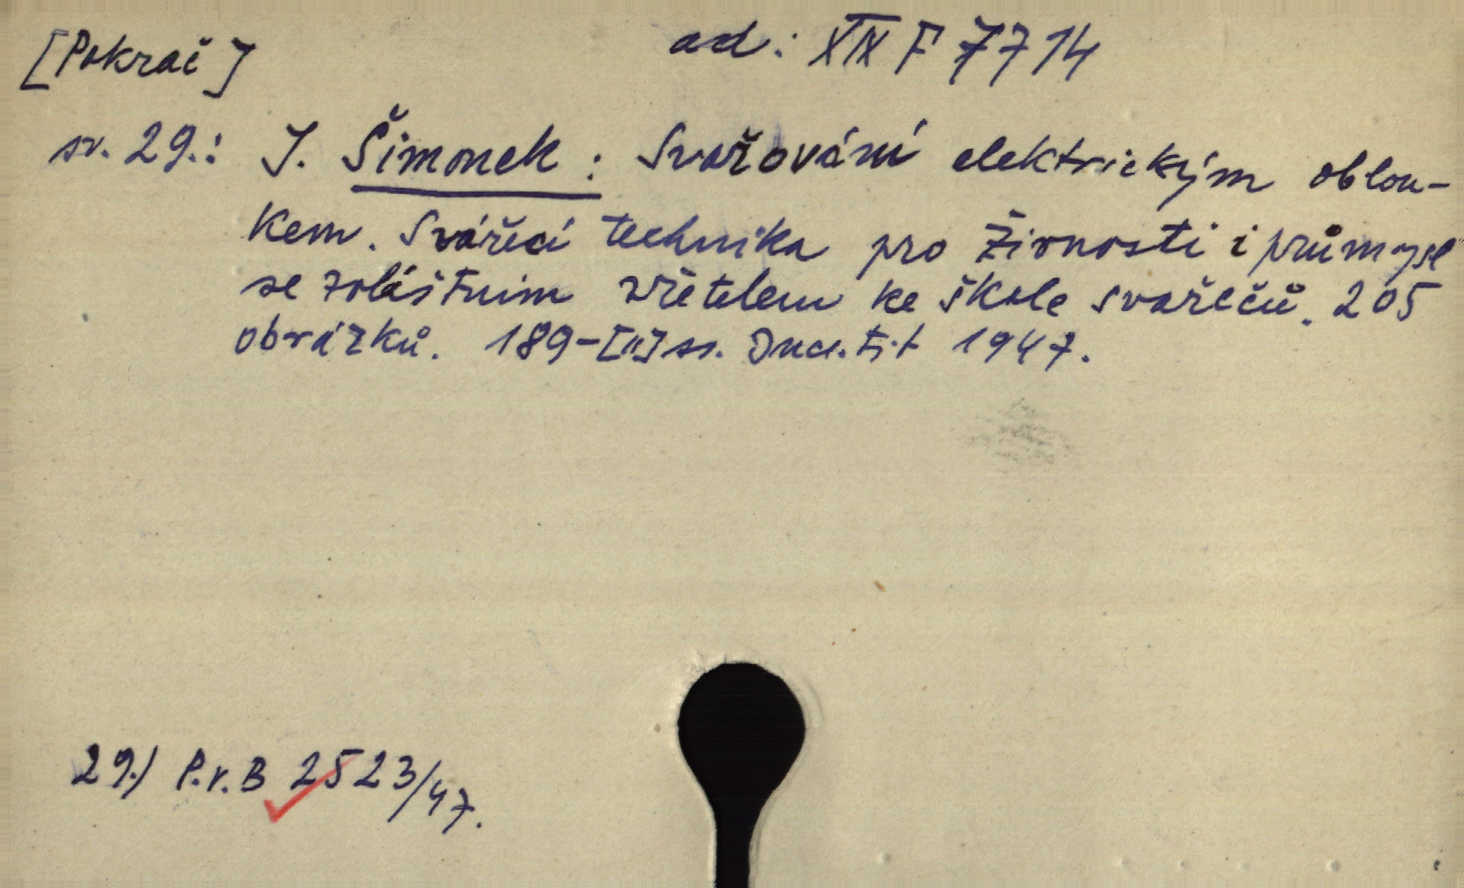 [Pokrač] ad: XIX F 7714
sv. 29.: J. Šimonek: Svařování elektrickým oblou-
kem. Svářecí technika pro živnosti i průmysl
se zvláštním zřetelem ke škole svařečů. 205
obrázků. 189-[II] ss. 1947.
29.) P.r.B 2523/47.